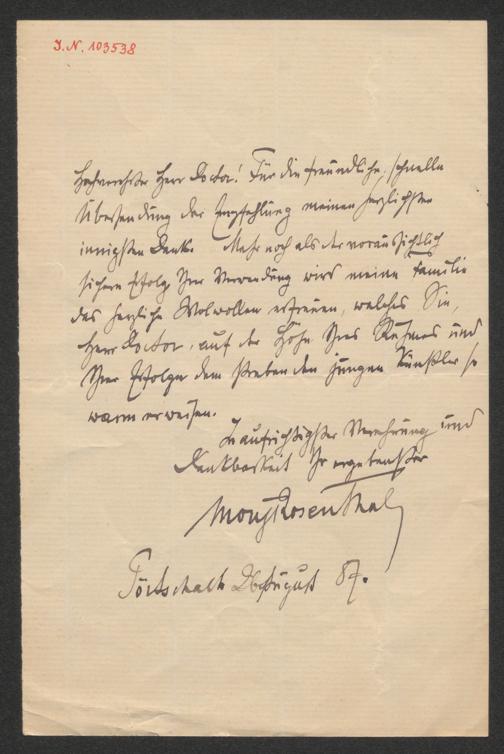 I.N. 103538
Hochverehrter Herr Doctor! Für die freundliche, schnelle
Übersendung der Empfehlung meinen herzlichsten
innigsten Dank. Mehr noch als der voraussichtlich
sichere Erfolg Ihrer Verwendung wird meine Familie
das herzliche Wolwollen erfreuen, welches Sie,
Herr Doctor, auf der Höhe Ihres Ruhmes und
Ihrer Erfolge dem strebenden jungen Künstler so
warm erweisen.
In aufrichtigster Verehrung und
Dankbarkeit Ihr ergebenster
Moriz Rosenthal
Pörtschach 26 August 87.